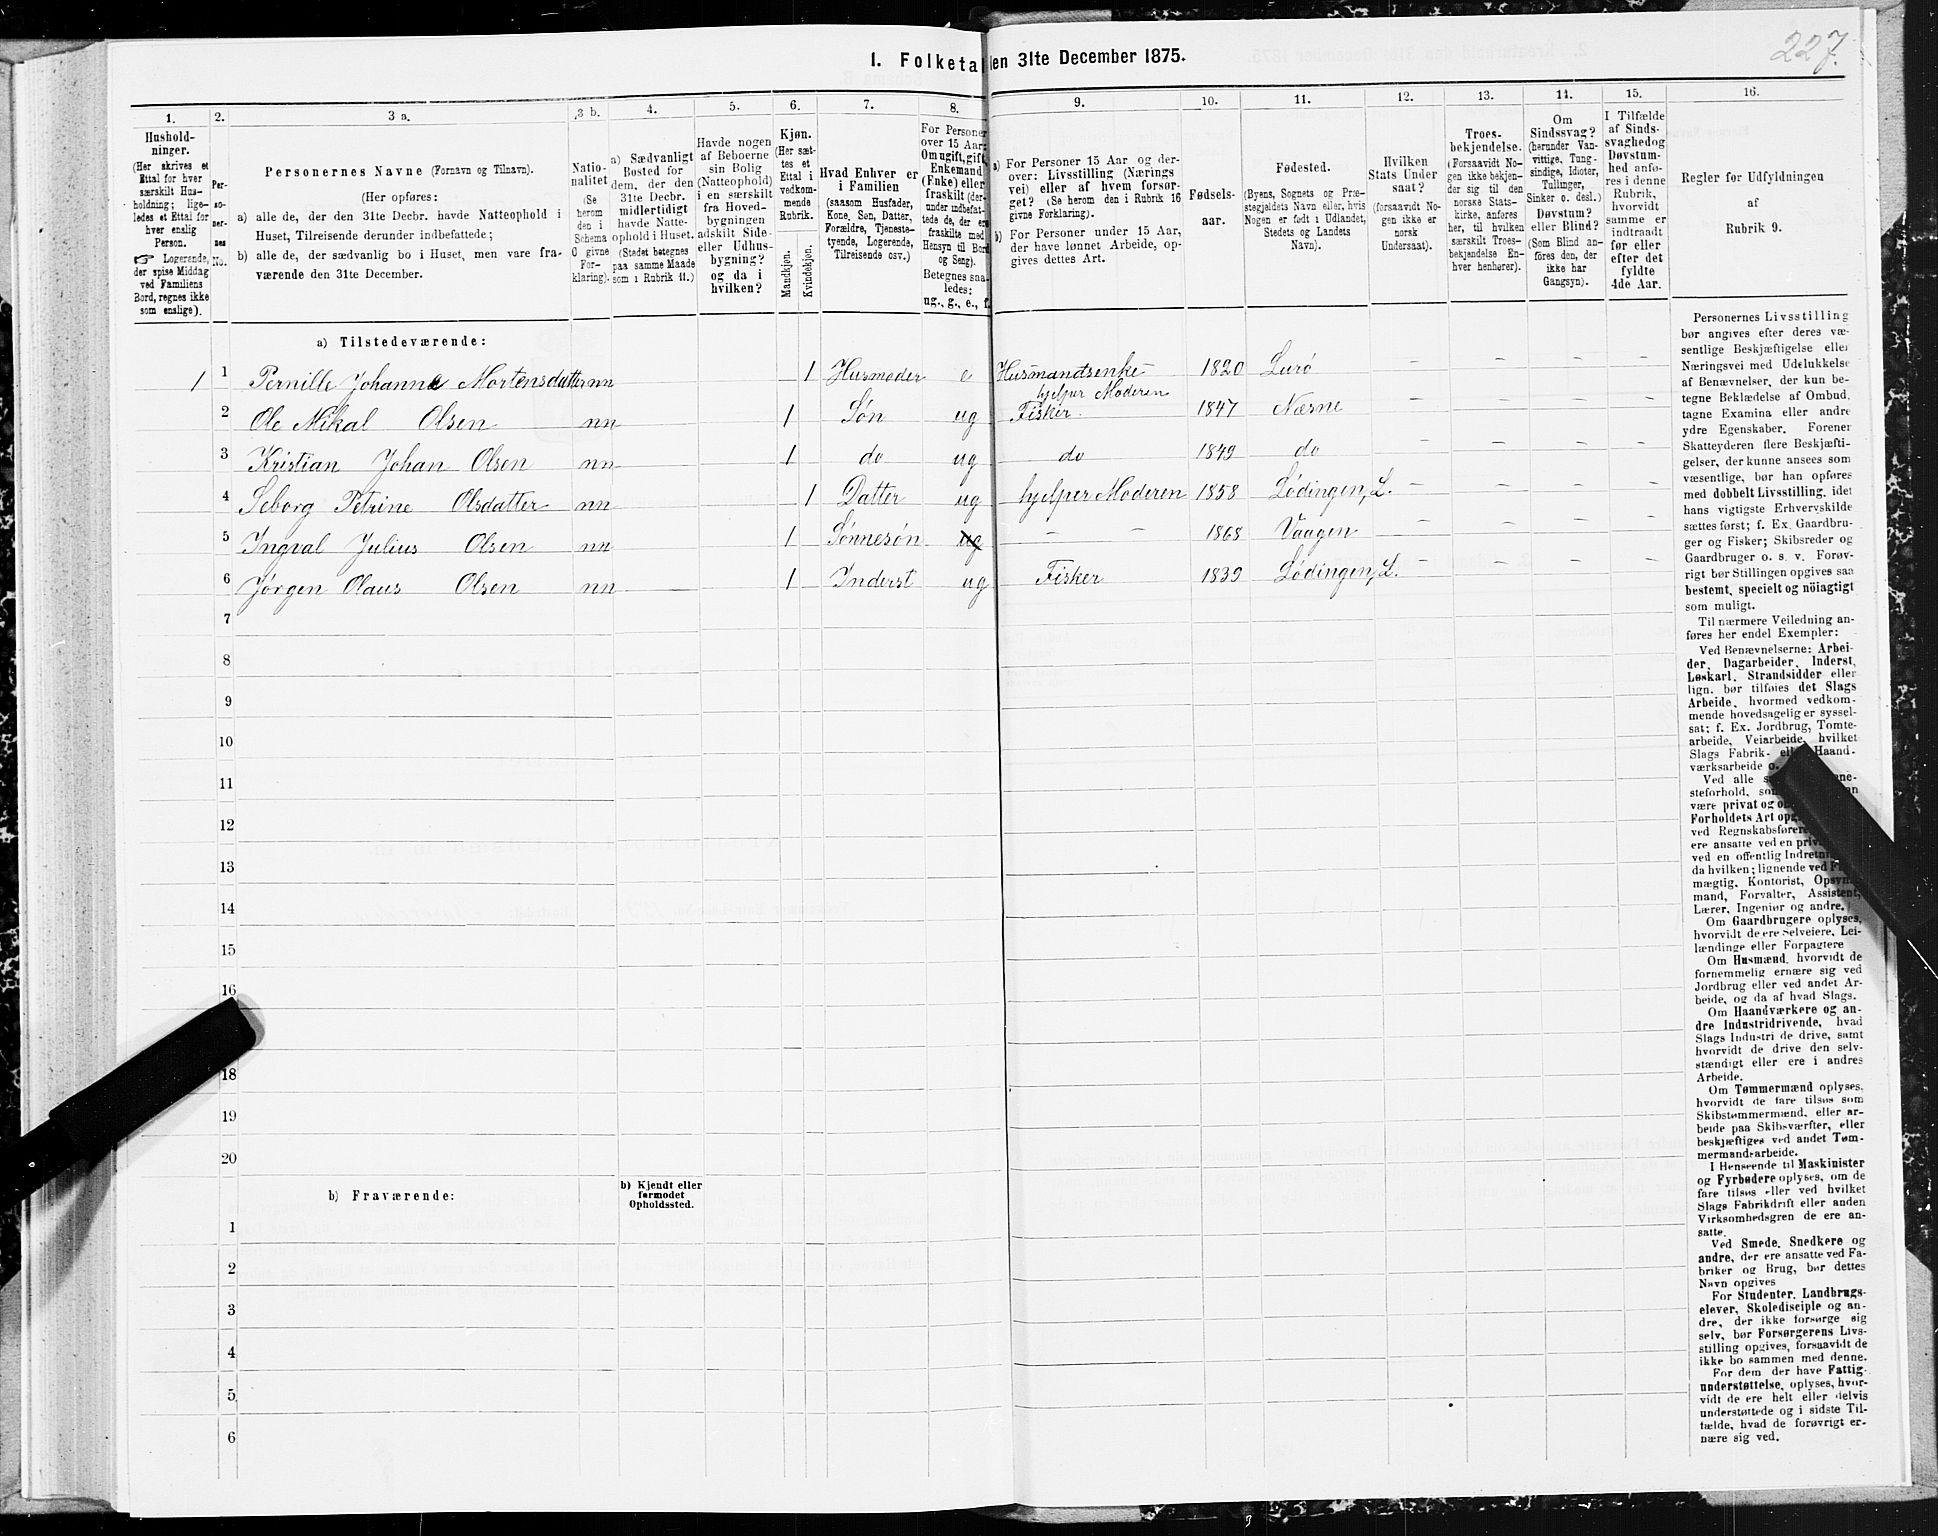 227.
1. Folketa len 31te December 1875.
1. 2. 3 a. 3 b. 4. 5. 6. 7. 8. 9. 10. 11. 12. 13. 14. 15. 16.
Hushold-
ninger.
(Her skrives et
Ettal for hver
særskilt Hus-
holdning; lige-
ledes et Ettal for
hver enslig
Person.
☞ Logerende,
der spise Middag
ved Familiens
Bord, regnes ikke
som enslige).
Per-
so-
ner-
nes
No.
Personernes Navne (Fornavn og Tilnavn).
(Her opføres:
a) alle de, der den 31te Decbr. havde Natteophold i
Huset, Tilreisende derunder indbefattede;
b) alle de, der sædvanlig bo i Huset, men vare fra-
værende den 31te December.
Natio-
nalitet
(Se
herom
den i
Schema
6 givne
For-
klaring).
a) Sædvanligt
Bosted for
dem, der den
31te Decbr.
midlertidigt
havde Natte-
ophold i Huset.
(Stedet betegnes
paa samme Maade
som i Rubrik 11.)
Havde nogen
af Beboerne
sin Bolig
(Natteophold)
i en særskilt
fra Hoved-
bygningen
adskilt Side-
eller Udhus-
bygning?
og da i
hvilken?
Kjøn.
(Her sæt-
tes et
Ettal i
vedkom-
mende
Rubrik.
Mandkjøn.
Kvindekjøn.
Hvad Enhver er
i Familien
(saasom Husfader,
Kone, Søn, Datter,
Forældre, Tjeneste-
tyende, Logerende,
Tilreisende osv.)
For Personer
over 15 Aar:
Om ugift, gift,
Enkemand
(Enke) eller
fraskilt (der-
under indbefat-
tede de, der ere
fraskilte med
Hensyn til Bord
og Seng).
Betegnes saa-
ledes:
ug., g., e., f.
a) For Personer 15 Aar og der-
over: Livsstilling (Nærings
vei) eller af hvem forsør-
get? (Se herom den i Rubrik 16
givne Forklaring).
b) For Personer under 15 Aar,
der have lønnet Arbeide, op-
gives dettes Art.
Fødsels-
aar.
Fødested.
(Byens, Sognets og Præ-
stegjeldets Navn eller, hvis
Nogen er født i Udlandet,
Stedets og Landets
Navn).
Hvilken
Stats Under
saat?
(forsaavidt No-
gen ikke er
norsk
Undersaat).
Troes-
bekjendelse.
(Forsaavidt No-
gen ikke bekjen-
der sig til den
norske Stats-
kirke, anføres
her, til hvilken
særskilt Troes-
bekjendelse En-
hver henhører).
Om
Sindssvag?
(herunder Van-
vittige, Tung-
sindige, Idioter,
Tullinger,
Sinker o. desl.)
Døvstum?
eller Blind?
(Som Blind an-
føres den, der
ikke har
Gangsyn).
I Tilfælde
af Sinds-
svaghed og
Døvstum-
hed anfø-
res i denne
Rubrik,
hvorvidt
samme er
indtraadt
før eller
efter det
fyldte
4de Aar.
Regler for Udfyldningen
af
Rubrik 9.
a) Tilstedeværende:
1 1 Pernille Johanne Mortensdatter nn 1 Husmoder e Husmandsenke 1820 Lurö - - - -
hjelper Moderen
2 Ole Mikal Olsen nn 1 Søn ug Fisker. 1847 Næsne - - - -
3 Kristian Johan Olsen nn 1 do ug do 1849 do - - - -
4 Seborg Petrine Olsdatter nn 1 Datter ug hjelper Moderen 1858 Lödingen, L. - - - -
5 Ingval Julius Olsen nn 1 Sønnesøn ug - - 1868 Vaagen - - - -
6 Jørgen Olaus Olsen nn 1 Inderst ug Fisker 1839 Lödingen, L. - - - -
7
8
9
10
11
12
13
14
15
16
18
19
20
b) Fraværende:
b) Kjendt eller
formodet
Opholdssted.
1
2
3
4
5
6
Personernes Livsstilling
bør angives efter deres væ-
sentlige Beskjæftigelse eller
Næringsvei med Udelukkelse
af Benævnelser, der kun be-
tegne Beklædelse af Ombud,
tagne Examina eller andre
ydre Egenskaber. Forener
Skatteyderen flere Beskjæfti-
gelser, der kunne ansees som
væsentlige, bør han opføres
med dobbelt Livsstilling, idet
hans vigtigste Erhvervskilde
sættes først; f. Ex. Gaardbru-
ger og Fisker; Skibsreder og
Gaardbruger o. s. v. Forøv-
rigt bør Stillingen opgives saa
bestemt, specielt og nöiagtigt
som muligt.
Til nærmere Veiledning an-
føres her endel Exempler:
Ved Benævnelserne: Arbei-
der, Dagarbeider, Inderst,
Løskarl, Strandsidder eller
lign. bør tilføies det Slags
Arbeide, hvormed vedkom-
mende hovedsagelig er syssel-
sat; f. Ex. Jordbrug, Tomte-
arbeide, Veiarbeide, hvilket
Slags Fabrik- eller Haand-
værksarbeide o.
Ved alle s ne-
steforhold, so an
være privat og of
Forholdets Art op
ved Regnskabsfører
ere ansatte ved en pri
ved en offentlig Indretn
da hvilken; lignende ved F
mægtig, Kontorist, Opsyns
mand, Forvalter, Assistent,
Lærer, Ingeniør og andre.
Om Gaardbrugere oplyses,
hvorvidt de ere Selveiere, Lei-
lændinge eller Forpagtere
Om Husmænd, hvorvidt de
fornemmelig ernære sig ved
Jordbrug eller ved andet Ar-
beide, og da af hvad Slags.
Om Haandværkere og an-
dre Industridrivende, hvad
Slags Industri de drive, samt
hvorvidt de drive den selv-
stændigt eller ere i andres
Arbeide.
Om Tømmermænd oplyses,
hvorvidt de fare tilsøs som
Skibstømmermænd, eller ar-
beide paa Skibsværfter, eller
beskjæftiges ved andet Tøm-
mermandsarbeide.
I Henseende til Maskinister
og Fyrbødere oplyses, om de
fare tilsøs eller ved hvilket
Slags Fabrikdrift eller anden
Virksomhedsgren de ere an-
satte.
Ved Smede, Snedkere og
andre, der ere ansatte ved Fa-
briker og Brug, bør dettes
Navn opgives
For Studenter, Landbrugs-
elever, Skoledisciple og an-
dre, der ikke forsørge sig
selv, bør Forsørgerens Livs-
stilling opgives, forsaavidt de
ikke bo sammen med denne.
For dem der have Fattig-
understøttelse, oplyses, hvor-
vidt de ere helt eller delvis
understøttede og i sidste Til-
fælde, hvad de forøvrigt er-
nære sig ved.